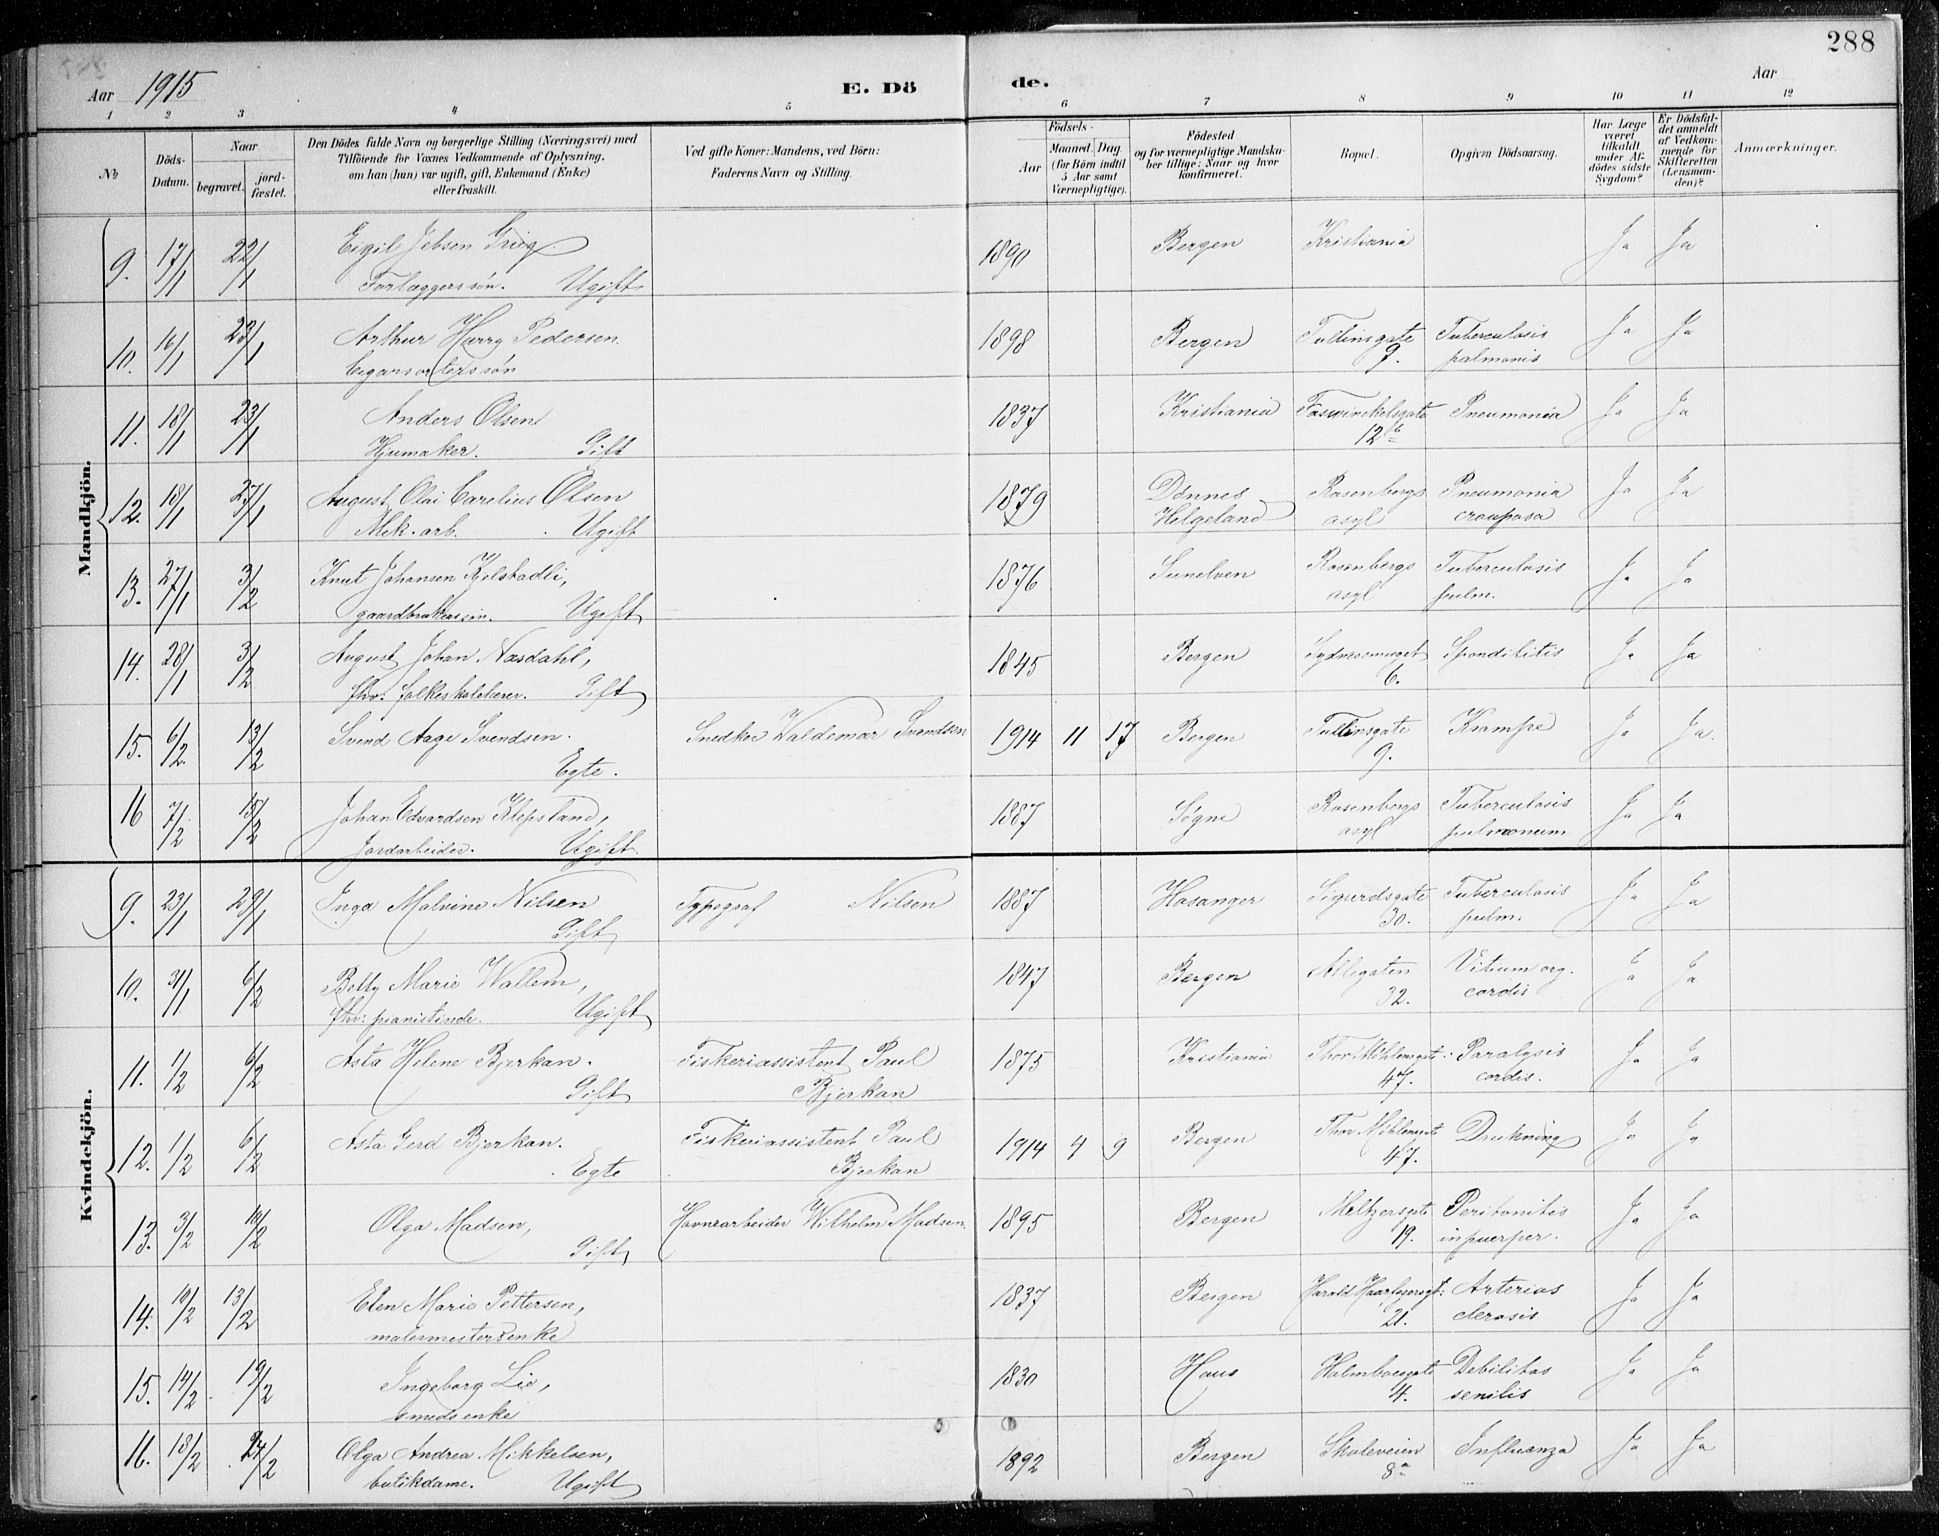 288
Aar 1915 E. Dö de. Aar
1 2 3 4 5 6 7 8 9 10 11 12
No Döds-Datum. Naar begravet. jord-fæstet. Den Dödes fulde Navn og borgerlige Stilling (Næringsvei) med Tilföiende for Voxnes Vedkommende af Oplysning, om han (hun) var ugift, gift, Enkemand (Enke) eller fraskilt. Ved gifte Koner: Mandens, ved Börn: Faderens Navn og Stilling. Födsels- Aar Maaned. Dag. (for Börn indtil 5 Aar samt Værnepligtige). Födested og for værnepligtige Mandskaber tillige: Naar og hvor konfirmeret. Bopæl. Opgiven Dödsaarsag. Har Læge været tilkaldt under Afdödes sidste Sygdom? Er Dödsfaldet anmeldt af Vedkommende for Skifteretten (Lensmanden)? Anmærkninger.
Mandkjön.
9. 17/1 22/1 Eigil Jebsen Grieg 1890 Bergen Kristiania Ja Ja
Forlæggerssøn. Ugift
10. 16/1 23/1 Arthur Harry Pedersen 1898 Bergen Tullinsgate Tuberculosis Ja Ja
Cigarsorterssøn 9. pulmonis
11. 18/1 23/1 Anders Olsen 1837 Kristiania Foswinckelsgate Pneumonia Ja Ja
Hjumaker. Gift 12 b
12. 18/1 27/1 August Olai Carelius Olsen 1879 Dønnes Rosenbergs Pneumonia Ja Ja
Mek. arb. Ugift Helgeland asyl crouposa
13. 27/1 3/2 Knut Johansen Kjelstadli, 1876 Sunelven Rosenbergs Tuberculosis Ja Ja
gaardbrukerssøn. Ugift asyl pulm.
14. 28/1 3/2 August Johan Næsdahl, 1845 Bergen Sydnessmuget Spondilitis Ja Ja
fhv. folkeskolelærer. Gift 6.
15. 6/2 13/2 Svend Aage Svendsen. Snedker Valdemar Svendsen 1914 11 17 Bergen Tullinsgate Krampe Ja Ja.
Egte. 9.
16 7/2 15/2 Johan Edvardsen Klepsland, 1887 Søgne Rosenbergs Tuberculosis Ja Ja
Jordarbeider. Ugift. asyl pulmonum
Kvindekjön.
9. 23/1 29/1 Inga Malvine Nilsen Typograf Nilsen 1887 Hosanger Sigurdsgate Tuberculosis Ja Ja
Gift 30. pulm.
10. 31/1 6/2 Betty Marie Wallem, 1847 Bergen Allegaten Vitium org. Ja Ja
fhv: pianistinde. Ugift 32. cordis
11. 1/2 6/2 Asta Helene Bjerkan. Fiskeriassistent Paul 1875 Kristiania Thor Möhlensgate Paralysis Ja Ja
Gift Bjerkan 47. cordis.
12. 1/2 6/2 Asta Gerd Bjerkan. Fiskeriassistent Paul 1914 9 Bergen Thor Möhlensgate Drukning Ja Ja
Egte Bjerkan 47.
13. 3/2 10/2 Olga Madsen, Havnearbeider Wilhelm Madsen 1895 Bergen Meltzersgate Peritonitis Ja Ja
Gift 19. in puerper.
14. 10/2 13/2 Elen Marie Pettersen, 1837 Bergen Harald Haarfagersgt: Arterios Ja Ja
malermestersenke 21. clerosis
15. 14/2 19/2 Ingeborg Lie, 1830 Haus Holmboesgate Debilitas Ja Ja
smedsenke 4. senilis
16. 18/2 24/2 Olga Andrea Mikkelsen, 1892 Bergen Skoleveien Influenza Ja Ja
butikdame. Ugift 8 a